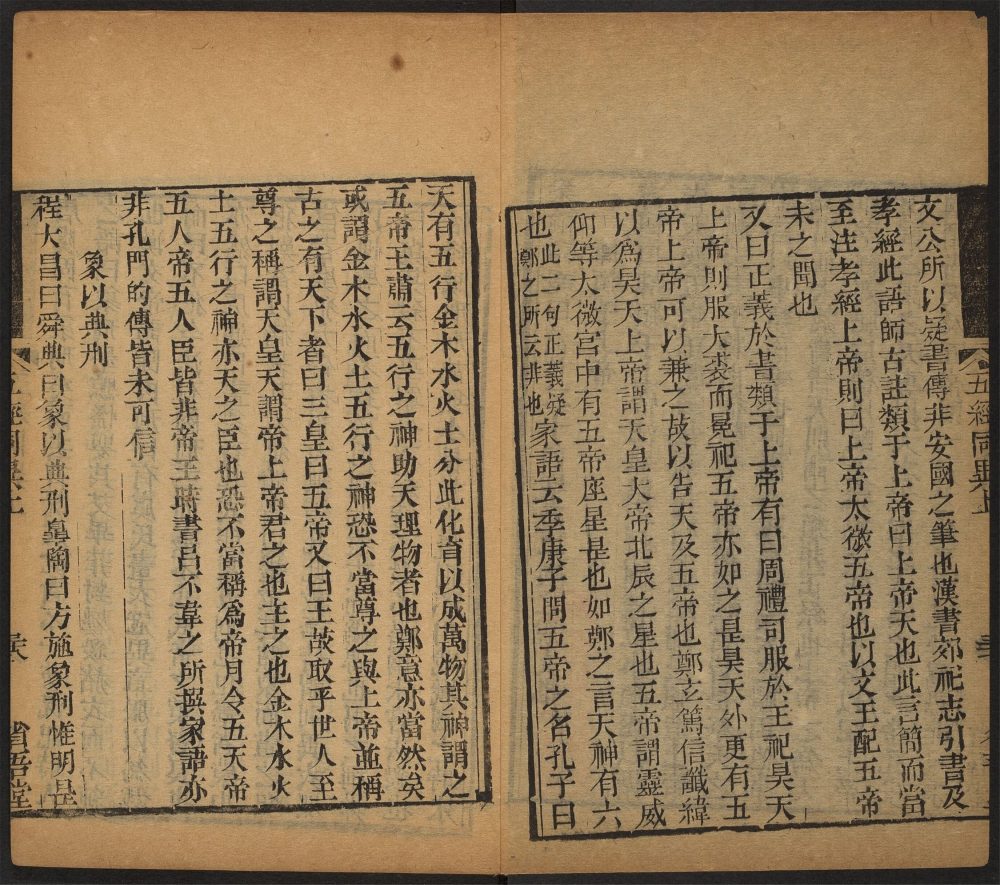 文公所以疑書傳非安國之筆也漢書郊祀志引書及
孝經此語師古註類于上帝曰上帝天也此言簡而當
至注孝經上帝則曰上帝太微五帝也以文王配五帝
未之聞也
又曰正義於書類于上帝有曰周禮司服於王祀昊天
上帝則服大裘而冕祀五帝亦如之是昊天外更有五
帝上帝可以兼之故以告天及五帝也鄭玄篤信讖緯
以爲昊天上帝謂天皇大帝北辰之星也五帝謂靈威
仰等太微宮中有五帝座星是也如鄭之言天神有六
也此二句正義疑鄭之所云非也家語云季康子問五帝之名孔子曰
五經同異上
天有五行金木水火土分此化育以成萬物其神謂之
五帝王肅云五行之神助天理物者也鄭意亦當然矣
或謂金木水火土五行之神恐不當尊之與上帝並稱
古之有天下者曰三皇曰五帝又曰王故取乎世人至
尊之稱謂天皇天謂帝上帝君之也主之也金木水火
土五行之神亦天之臣也恐不當稱爲帝月令五天帝
五人帝五人臣皆非帝王時書呂不韋之所撰家語亦
非孔門的傳皆未可信
象以典刑
程大昌曰舜典曰象以典刑臯陶曰方施象刑惟明是
五經同異上
省吾堂